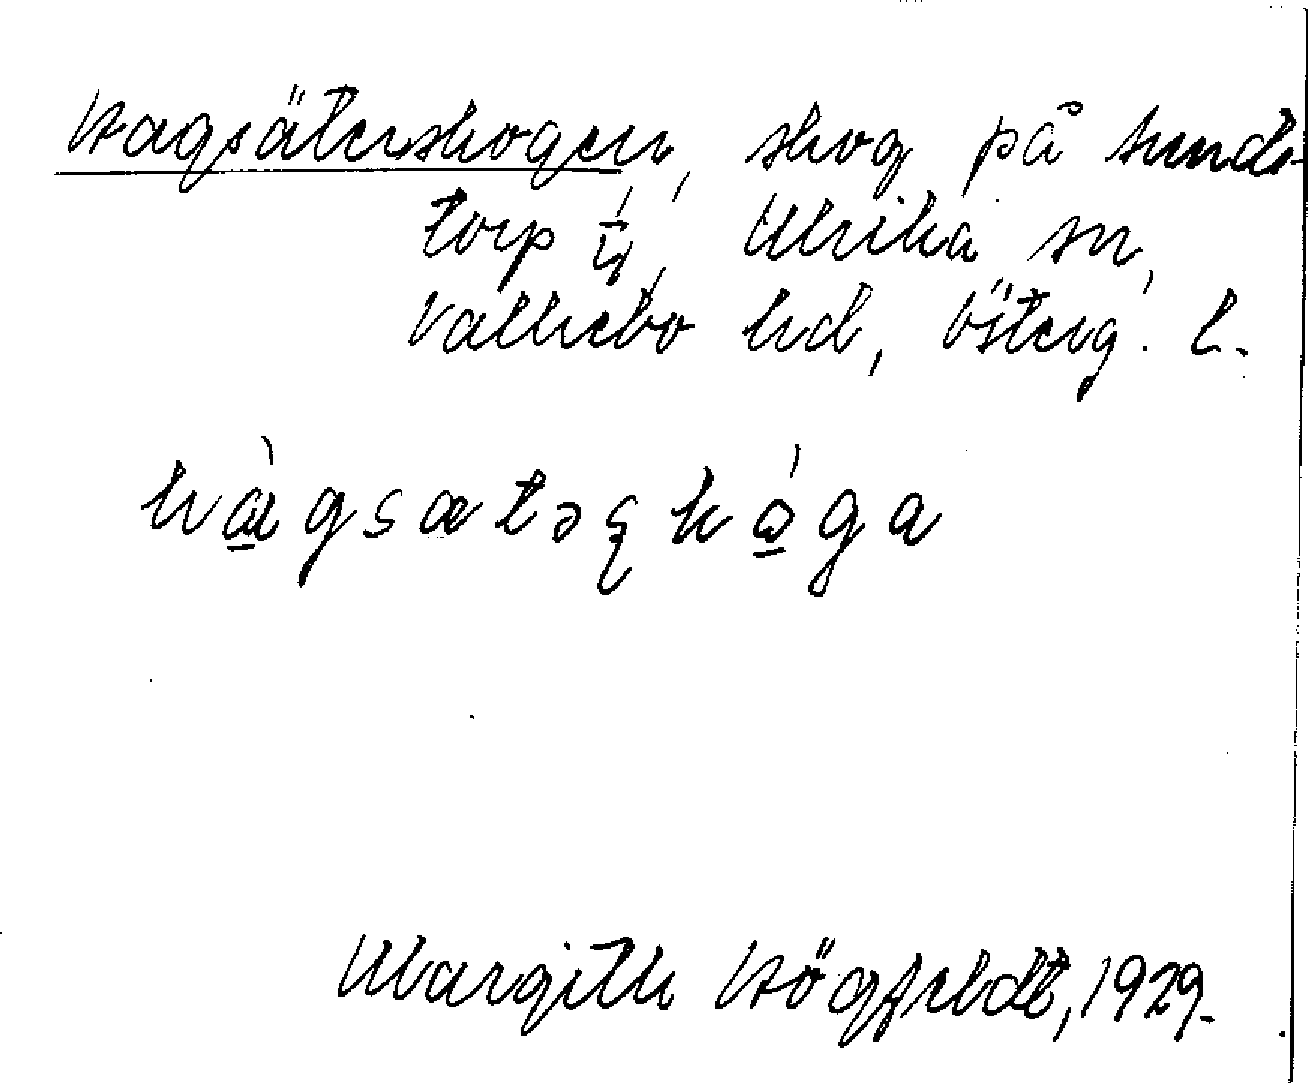 Hagsäterskogen, skog på Sunds-
torp 1/4, Ulrika sn,
Valkebo hd, Österg. l.
hàgsætəʂkóga
Margith Högfeldt, 1929.